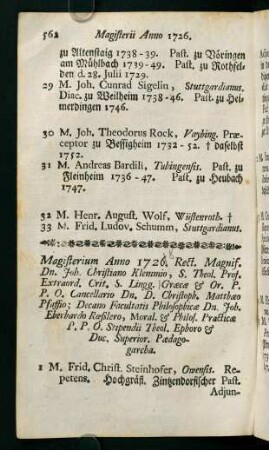 562 Magisterii Anno 1726.
zu Altenstaig 1738-39. Past. zu Vöringen
am Mühlbach 1739-49. Past. zu Rothfel-
den d. 28. Julii 1729.
29 M. Joh. Cunrad Sigelin, Stuttgardianus.
Diac. zu Weilheim 1738-46. Past. zu Hei-
merdingen 1746.
30 M. Joh. Theodorus Rock, Vaybing. Præ-
ceptor zu Bessigheim 1732-52. † Daselbst
1752.
31 M. Andreas Bardili, Tubingensis. Past. zu
Fleinheim 1736-47. Past. zu Heubach
1747.
32 M. Henr. August. Wolf, Wüstenroth. †
33 M. Frid. Ludov. Schumm, Stuttgardianus.
Magisterium Anno 1726. Rect. Magnif.
Dn. Joh. Christiano Klemmio, S. Theol. Prof.
Extraord. Crit. S. Lingg. Græcæ & Or. P.
P. O. Cancellario Dn. D. Christoph. Matthæo
Pfaffio; Decano Facultatis Philosophicæ Dn. Joh.
Eberhardo Rœslero, Moral. & Philos. Practicæ
P. P. O. Stipendii Theol. Ephoro &
Duc. Superior. Pædago-
garcha.
1 M. Frid. Christ. Steinhofer, Owensis. Re-
petens. Hochgräfl. Zintzendorfischer Past.
Adjun-